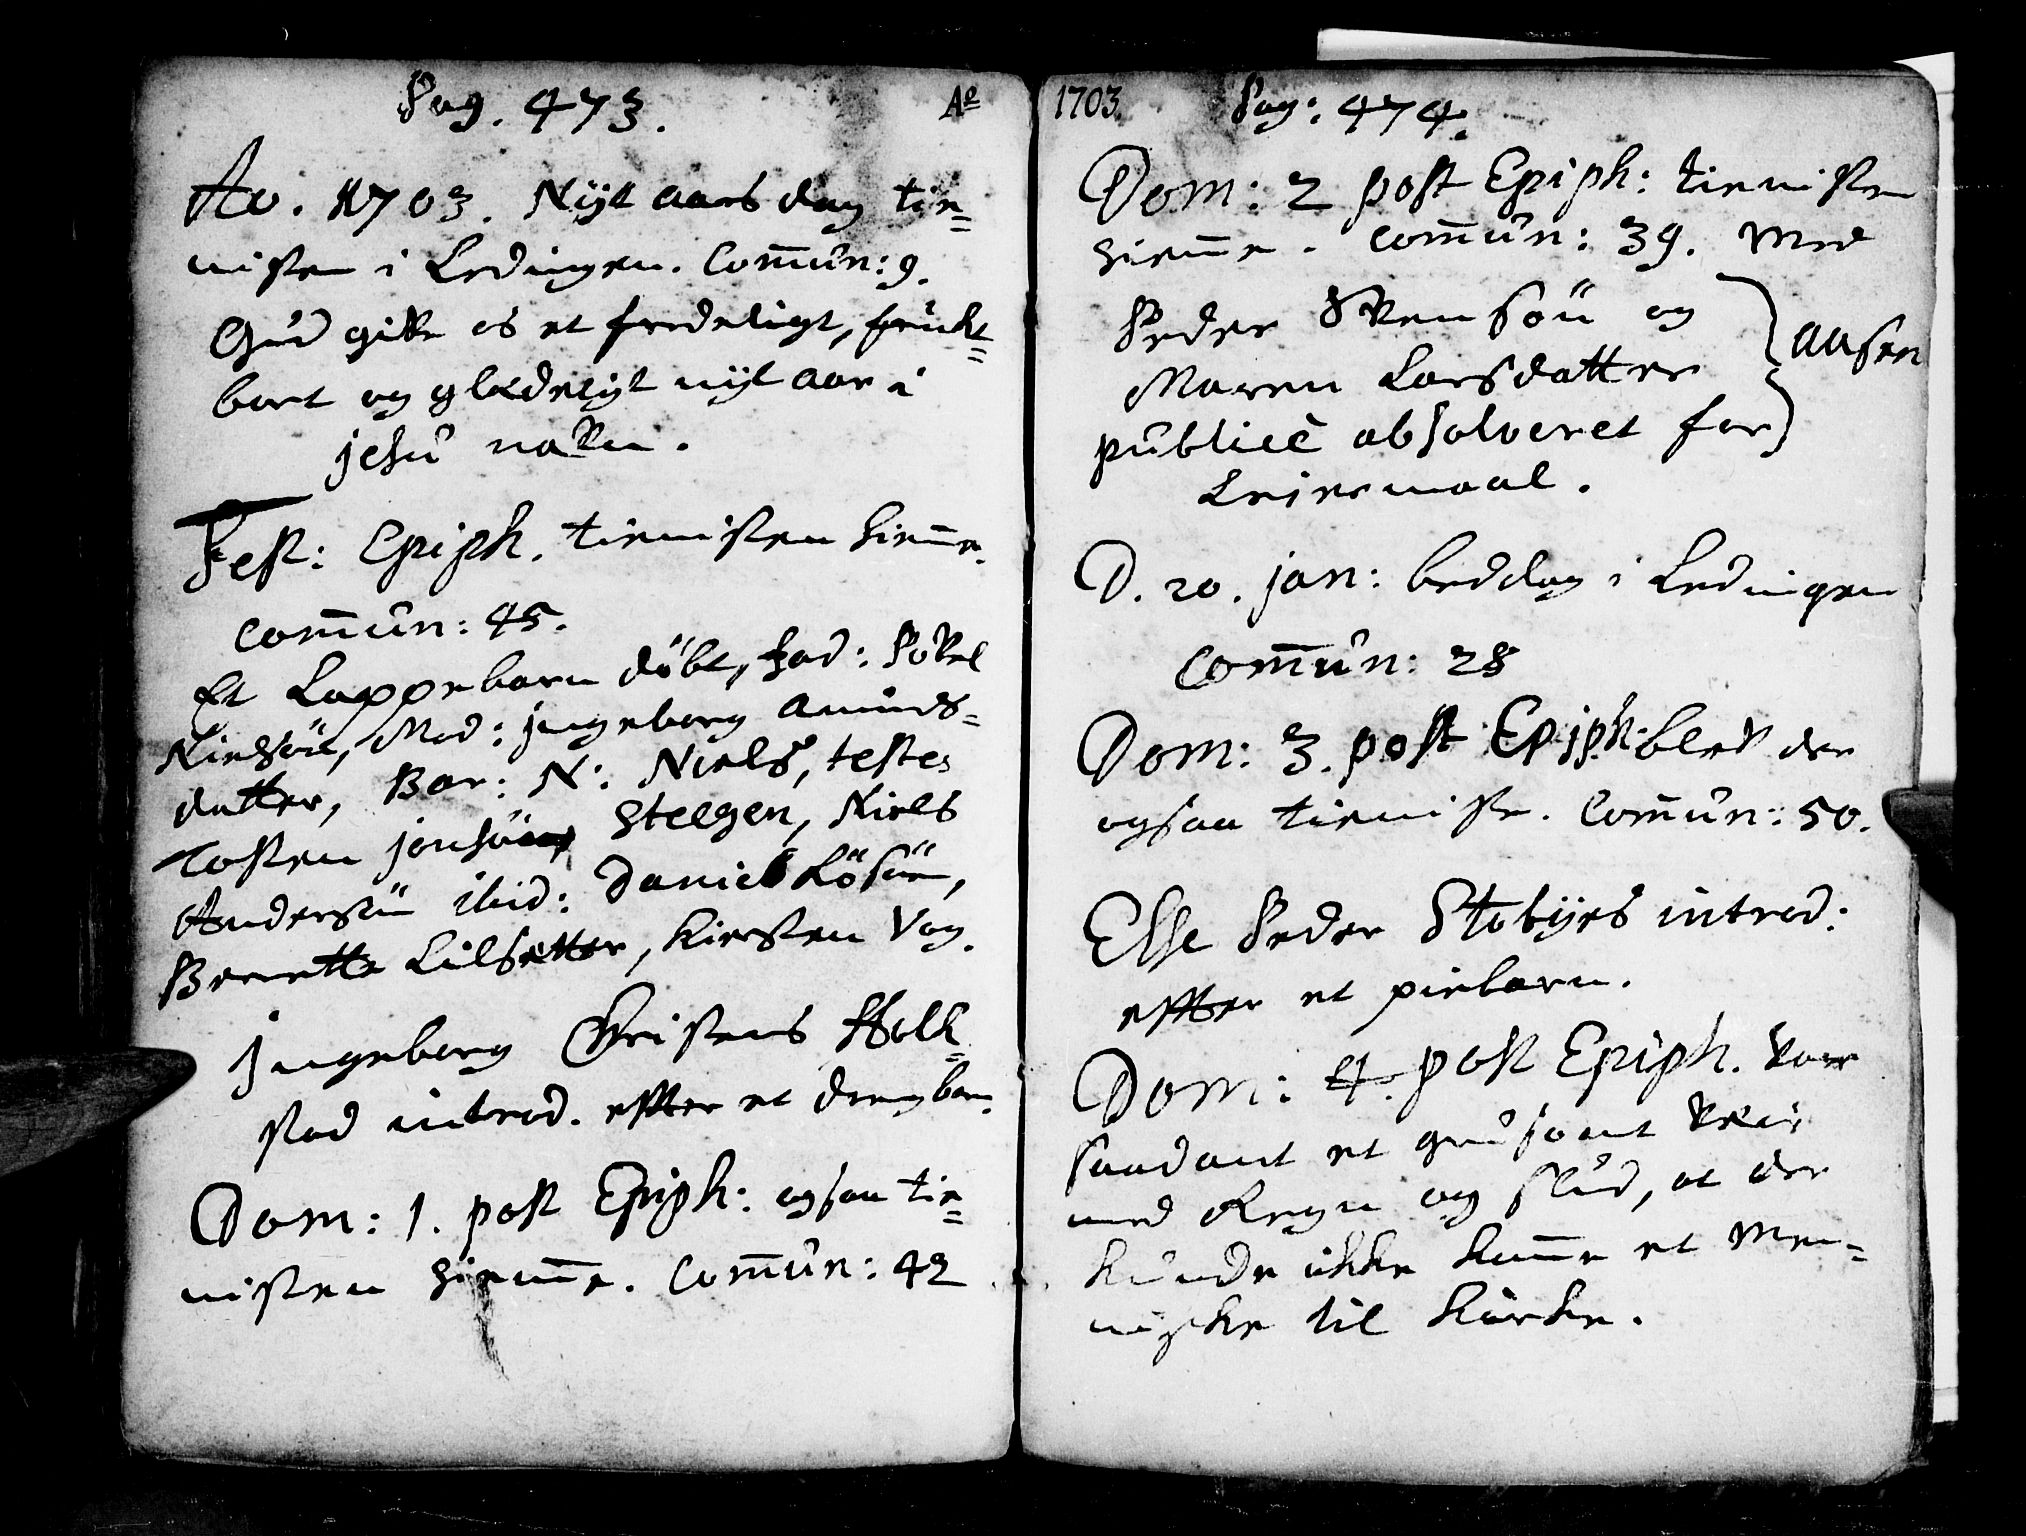 Pag. 473.
Ao
Ao. 1703. Nyt aars dag tie=
nisten i Ledingen. Comun: 9.
Gud give os et fredeligt, frukt=
bart og glædeligt nyt aar i
jesu navn.
Fest: Epiph. tienisten hieme.
Comun: 45.
Et Lappebarn döbt, Fad: Povel
Nielsön, Mod: jngeborg Amunds=
datter, Bar: N: Niels, testes
Tosten jonsön, Steegen, Niels
Andersön ibid: Daniel
Berette, Kiersten Vog.
Jngeborg Christens Holk=
stad introd. efter et drengbarn.
Dom: 1. post Epiph: ogsaa tie=
nisten hieme. Comun: 42
1703.
Pag: 474.
Dom: 2 post Epiph: tienisten
hieme. Comun: 39. Med
Peder Svensön og
Maren Larsdatter
Aasen
publicè absolveret for
Leiermaal.
D. 20. jan: beddag i Ledingen
Comun: 28
Dom: 3. post Epiph: blev der
ogsaa tieniste. Comun: 50.
Else Peder Stobyes introd:
effter et piebarn.
Dom: 4. post Epiph. var
saadant et grusomt veir
med Regn og slud, at der
kunde ikke kome et Men=
niske til kirke.